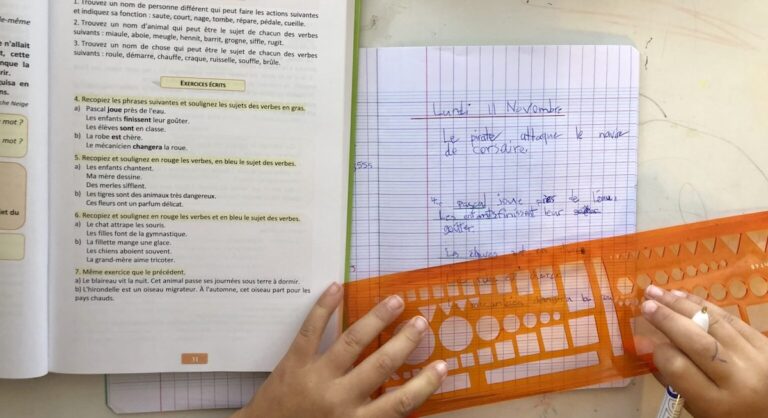 le-même
1. Trouvez un nom de personne différent qui peut faire les actions suivantes
et indiquez sa fonction : saute, court, nage, tombe, répare, pédale, cueille.
2. Trouvez un nom d'animal qui peut être le sujet de chacun des verbes
suivants : miaule, aboie, meugle, hennit, barrit, grogne, siffle, rugit.
3. Trouvez un nom de chose qui peut être le sujet de chacun des verbes
suivants : roule, démarre, chauffe, craque, ruisselle, souffle, brûle.
n'allait
, cette
nque la
rir.
uisa en
ns.
che Neige
mot ?
mot ?
et du
EXERCICES ÉCRITS
4. Recopiez les phrases suivantes et soulignez les sujets des verbes en gras.
a) Pascal joue près de l'eau.
Les enfants finissent leur goûter.
Les élèves sont en classe.
b) La robe est chère.
Le mécanicien changera la roue.
5. Recopiez et soulignez en rouge les verbes, en bleu le sujet des verbes.
a) Les enfants chantent.
Ma mère dessine.
Des merles sifflent.
b) Les tigres sont des animaux très dangereux.
Ces fleurs ont un parfum délicat.
6. Recopiez et soulignez en rouge les verbes et en bleu le sujet des verbes.
a) Le chat attrape les souris.
Les filles font de la gymnastique.
b) La fillette mange une glace.
Les chiens aboient souvent.
La grand-mère aime tricoter.
7. Même exercice que le précédent.
a) Le blaireau vit la nuit. Cet animal passe ses journées sous terre à dormir.
b) L'hirondelle est un oiseau migrateur. À l'automne, cet oiseau part pour les
pays chauds.
31
Lundi 11 Novembre
Le pirate attaque le navire
de corsaire.
4. Pascal joue de l'eau.
Les enfants finissent leur
goûter.